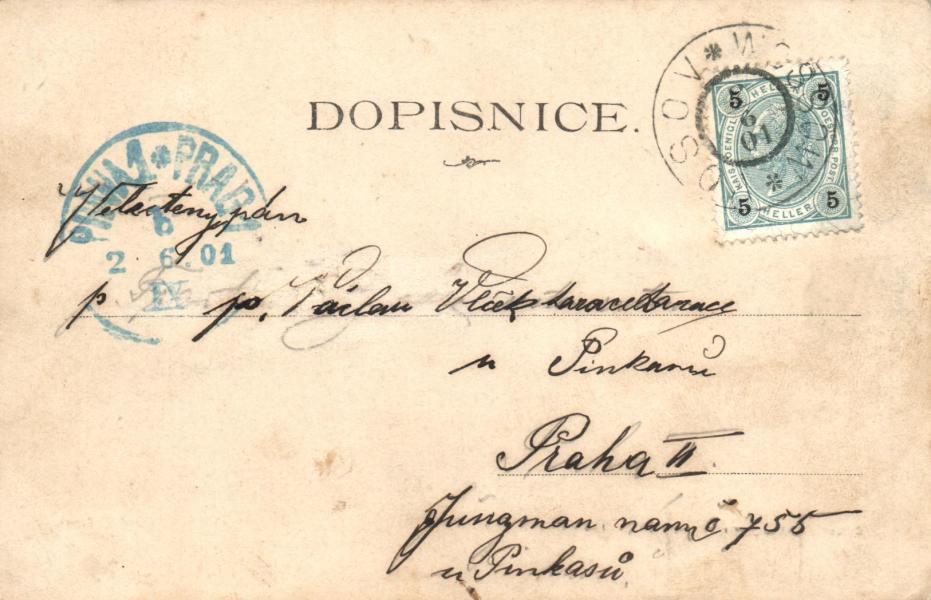 DOPISNICE.
PRAHA 1 * PRAG 1
6
2 6. 01
IX
OSOV * WOSSOW *
6
01
5 HELLER 5
KAIS. KOENIGL. OESTERR. POST
5 HELLER 5
Velectěný pán
p. p. Václav Vlček
u Pinkasů
Praha II.
Jungman nám č. 755
u Pinkasů